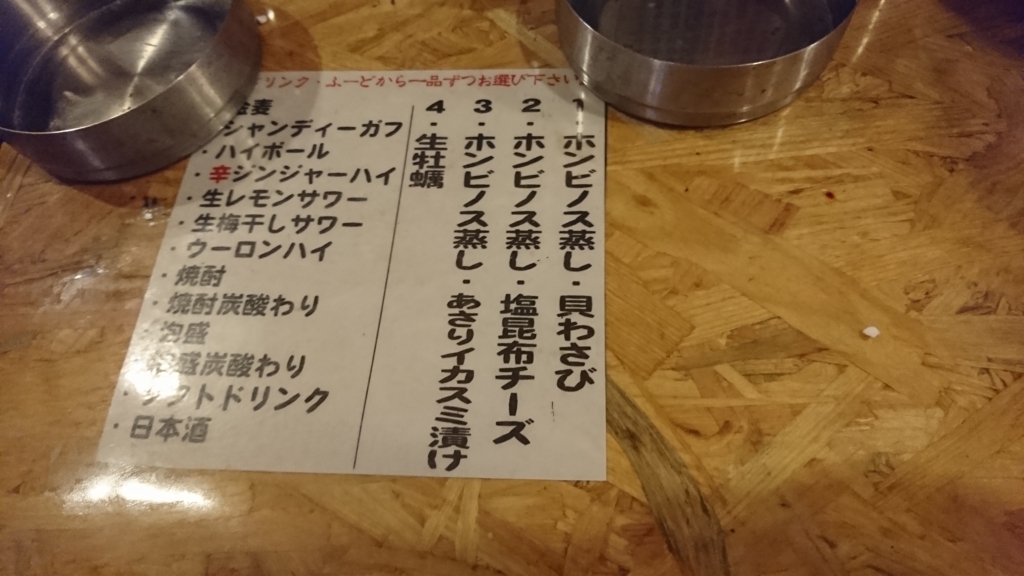 リンク・ふーどから一品ずつお選び下さい
1・ホンビノス蒸し・貝わさび
2・ホンビノス蒸し・塩昆布チーズ
3・ホンビノス蒸し・あさりイカスミ漬け
4・生牡蠣
金麦
シャンディーガフ
・ハイボール
・辛ジンジャーハイ
・生レモンサワー
・生梅干しサワー
・ウーロンハイ
・焼酎
・焼酎炭酸わり
・泡盛
泡盛炭酸わり
・ソフトドリンク
・日本酒